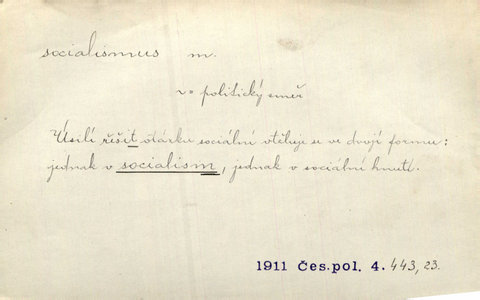 socialismus m.
~ politický směr
Úsilí řešit otázku sociální vtěluje se ve dvojí formu:
jednak v socialism, jednak v sociální hnutí.
1911 Čes.pol. 4. 443, 23.